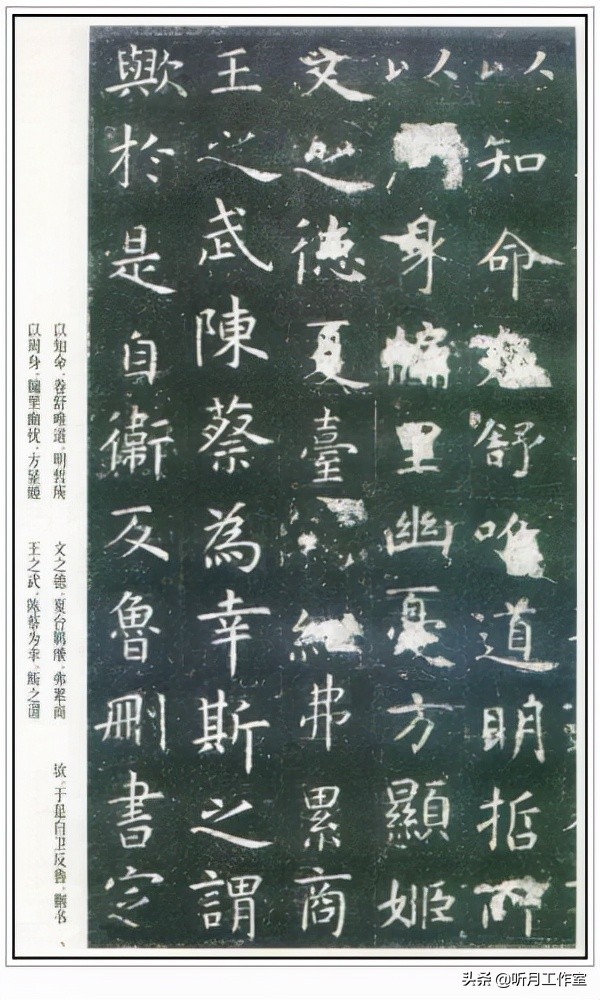 以知命卷舒唯道明哲所
以周身牖里幽憂方顯姬
文之德夏臺紲弗累商
王之武陳蔡為幸斯之謂
歟於是自衛反魯刪書定
以知命，卷舒唯道，明哲所
以周身，牖里幽忧，方显姬
文之德，夏台羁绁，弗累商
王之武，陈蔡为幸，斯之谓
欤，于是自卫反鲁，删书、
头条 @听月工作室